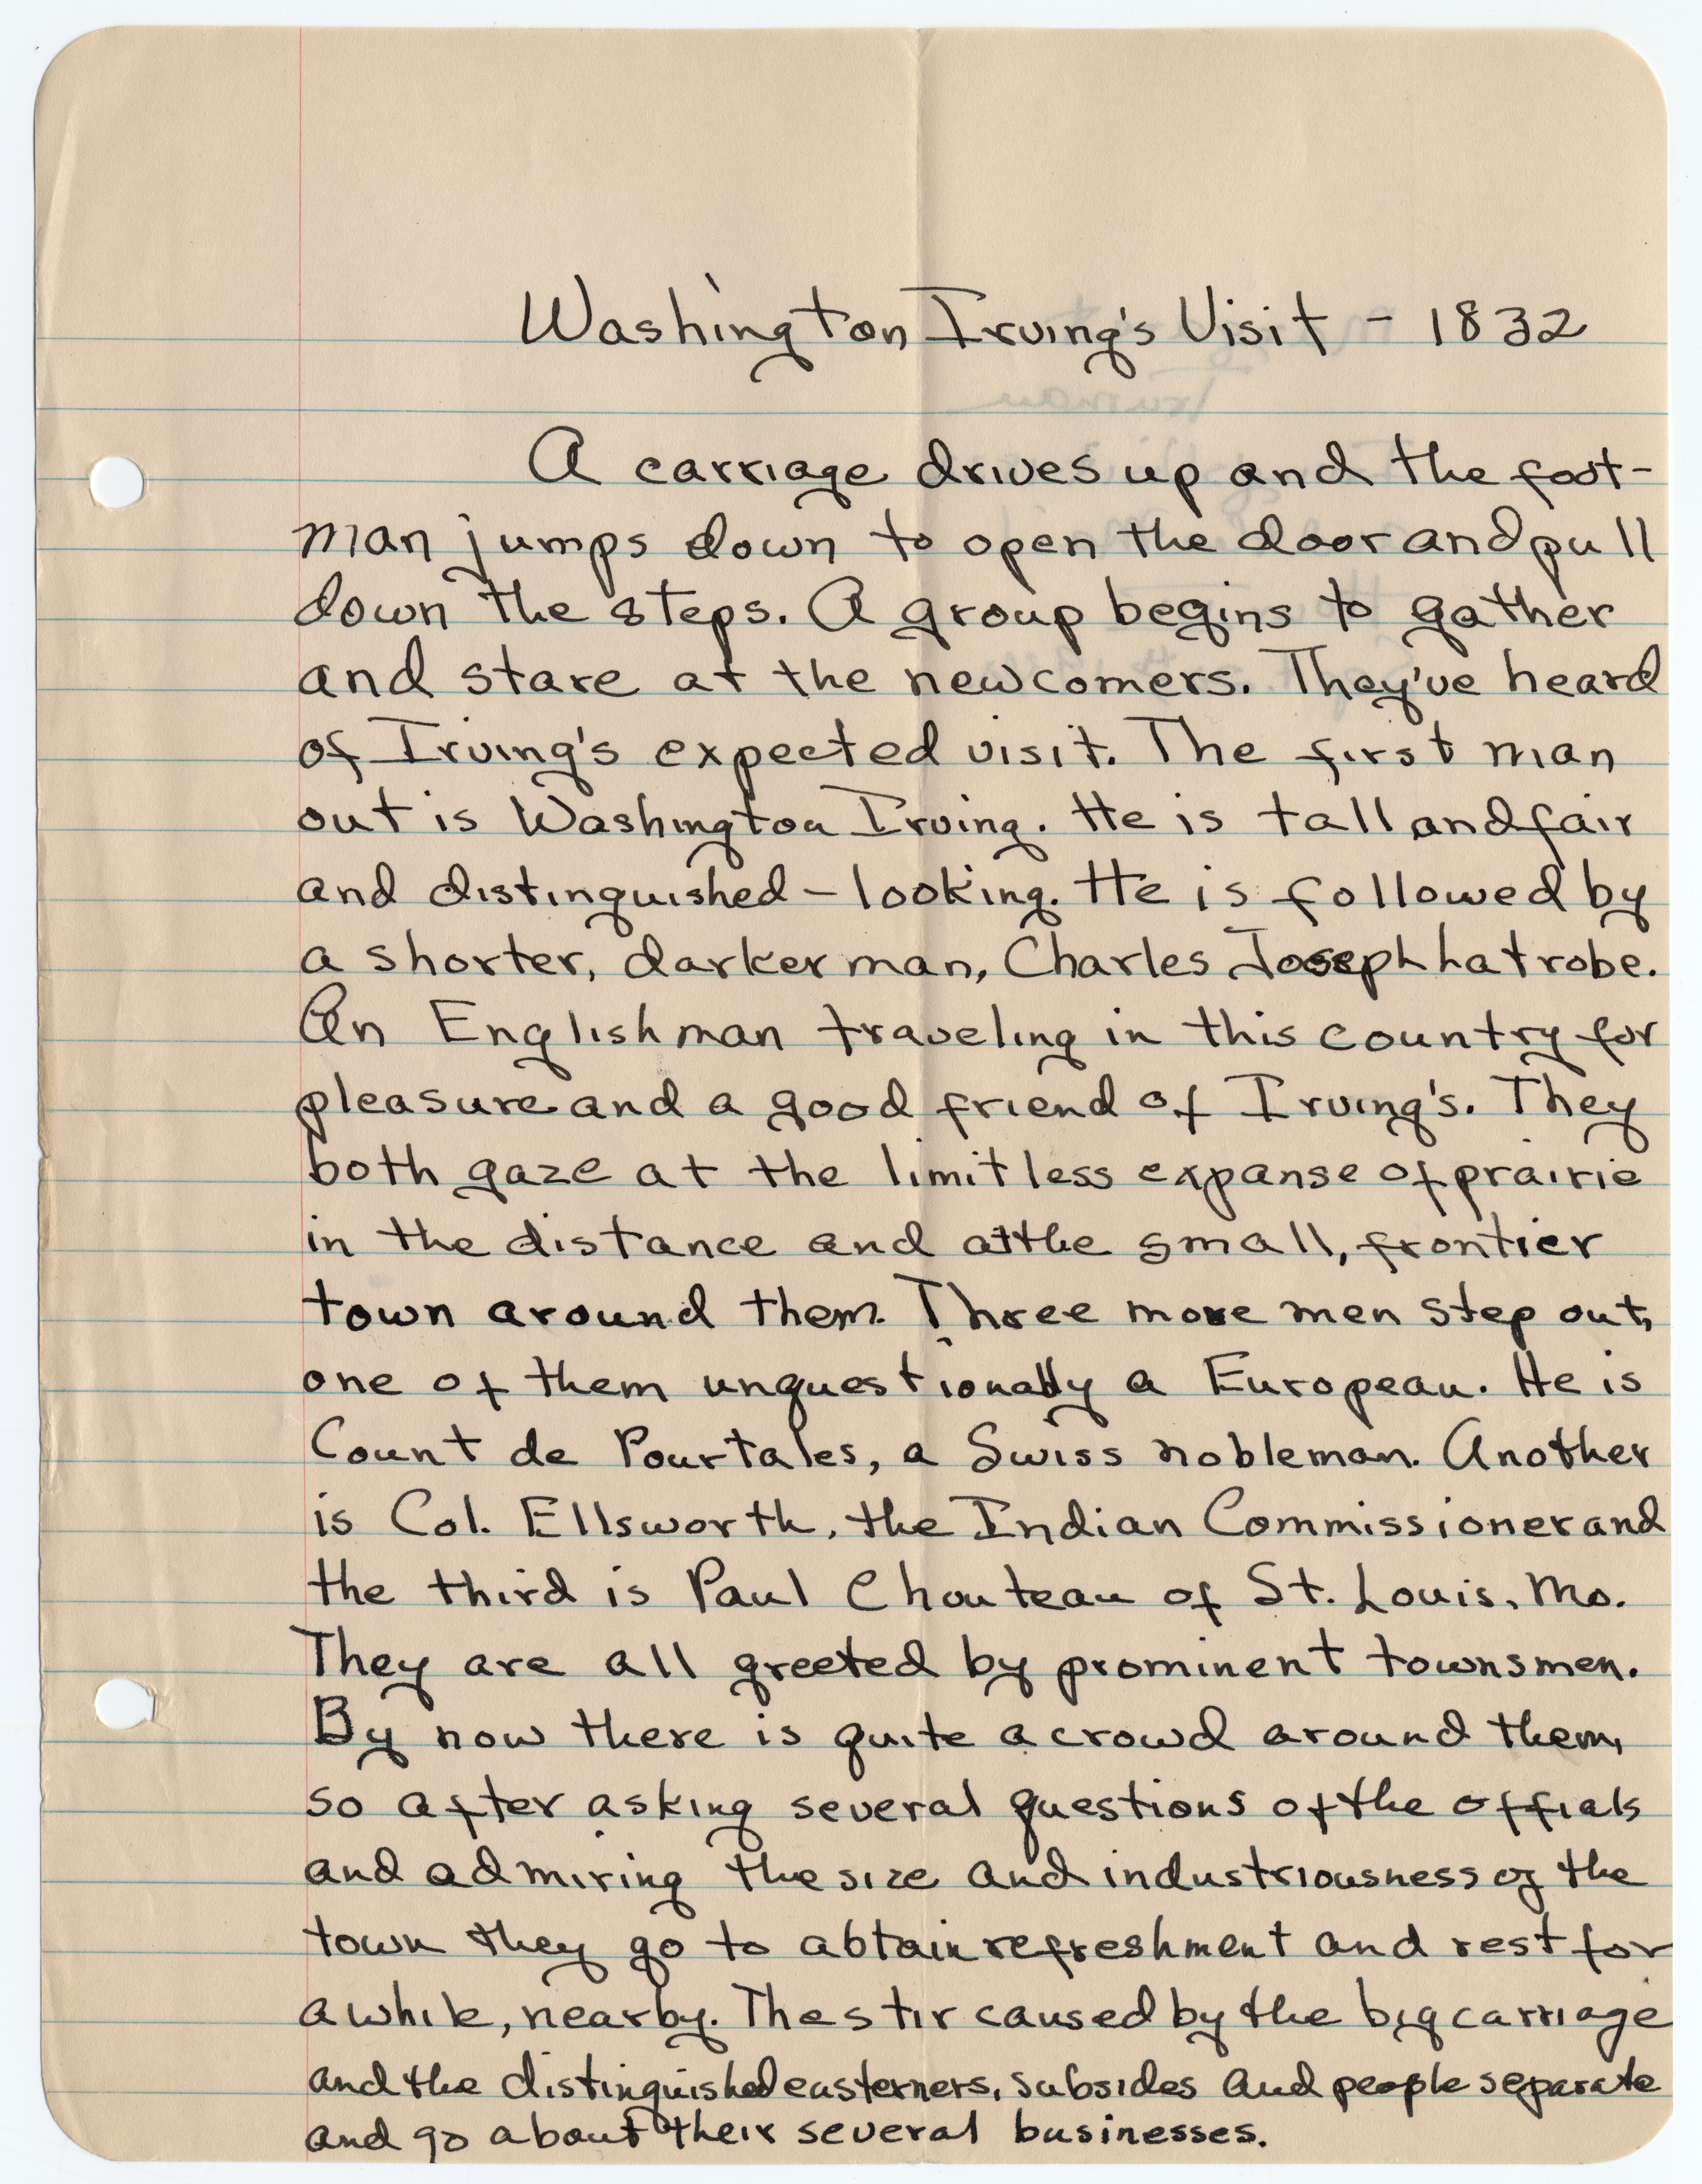 Washington Irving's Visit - 1832
A carriage drives up and the foot-
man jumps down to open the door and pull
down the steps. A group begins to gather
and stare at the newcomers. They've heard
of Irving's expected visit. The first man
out is Washington Irving. He is tall and fair
and distinguished-looking. He is followed by
a shorter, darker man, Charles Joseph Latrobe.
An Englishman traveling in this country for
pleasure and a good friend of Irving's. They
both gaze at the limitless expanse of prairie
in the distance and at the small, frontier
town around them. Three more men step out,
one of them unquestionably a European. He is
Count de Pourtales, a Swiss nobleman. Another
is Col. Ellsworth, the Indian Commissioner and
the third is Paul Chouteau of St. Louis, Mo.
They are all greeted by prominent townsmen.
By now there is quite a crowd around them,
so after asking several questions of the offials
and admiring the size and industriousness of the
town they go to obtain refreshment and rest for
awhile, nearby. The stir caused by the big carriage
and the distinguished easterners, subsides and people separate
and go about their several businesses.